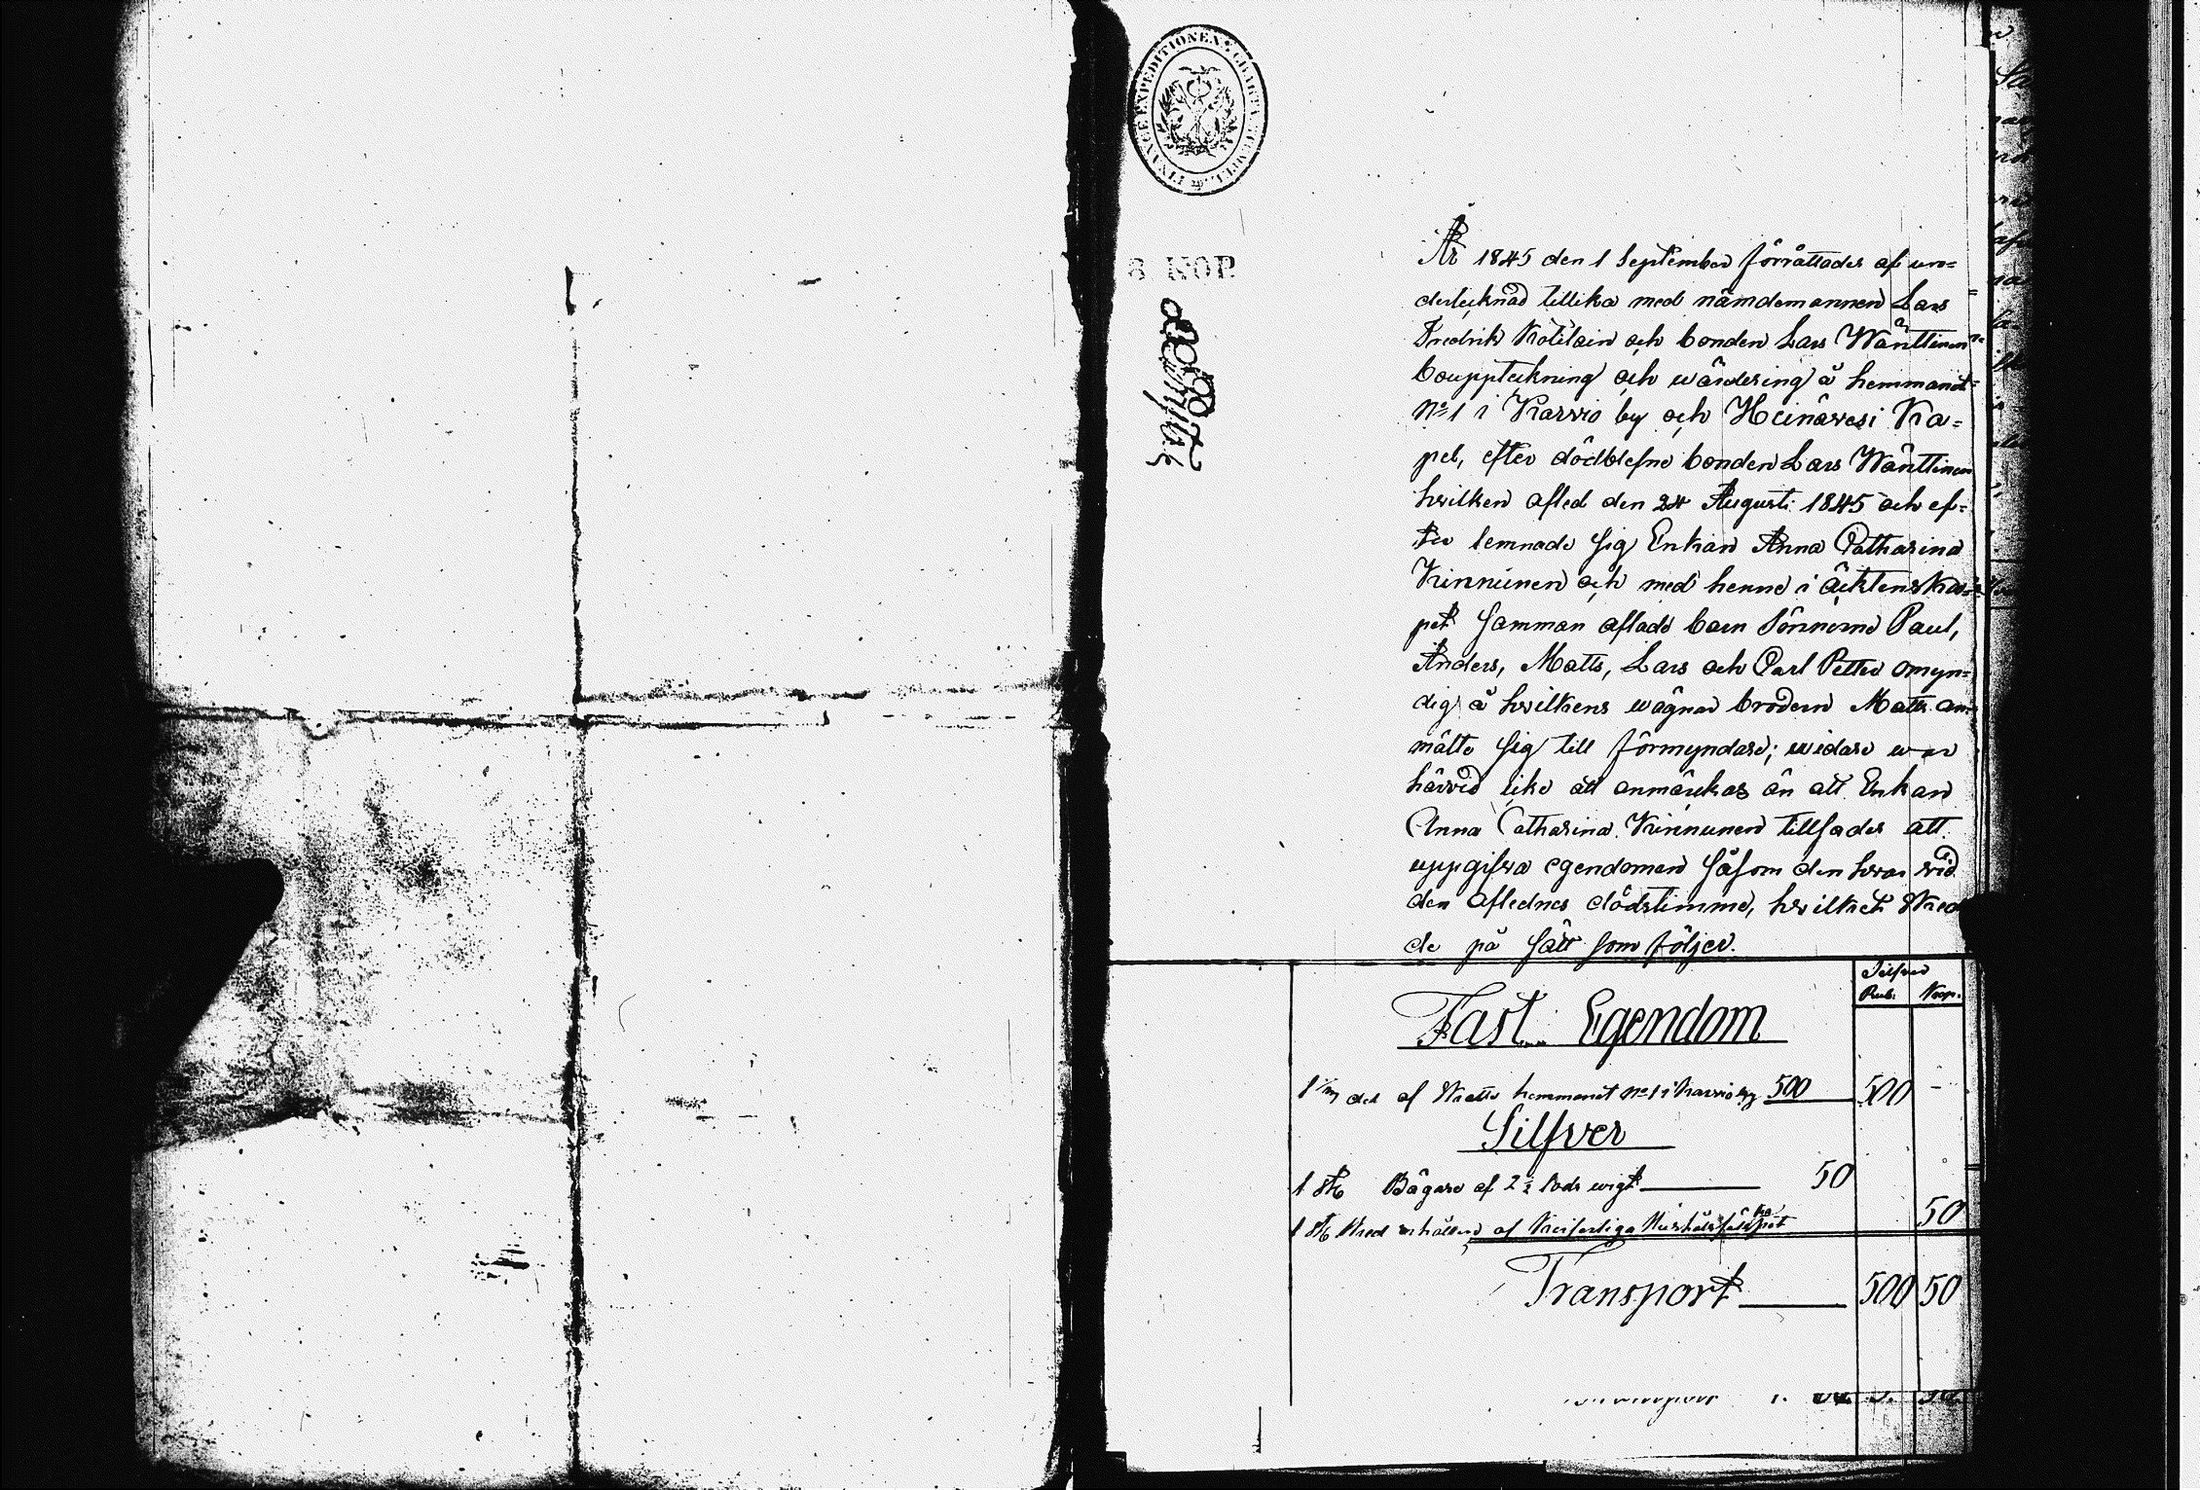 FINANCE EXPEDITIONENS CHARTA STEMPEL
8 KOP.
År 1845 den 1 September förrättades af un=
dertecknad tillika med nämdemannen Lars
Fredrik Kotilain och bonden Lars Wänttinen
bouppteckning och wärdering å hemmanet
No 1 i Karvio by och Heinävesi Ka=
pel, efter dödblefne bonden Lars Wänttinen
hvilken afled den 24 Augusti 1845 och ef=
ter lemnade sig Enkan Anna Catharina
Kinnunen och med henne i äcktenska=
pet samman aflade barn Sönnerne Paul,
Anders, Matts, Lars och Carl Petter omyn=
dig å hvilkens wägnar brodern Matts an=
mälte sig till förmyndare; widare war
härvid icke att anmärkas än att Enkan
Anna Catharina Kinnunen tillsades att
uppgifva egendomen såsom den hvar vid
den aflednes dödstimme, hvilket sked
de på sätt som följer.
Silfver
Rub. Kop.
Fast Egendom
del af Skatte hemmanet No 1 i Karvio by 500 500 -
Silfver
1 st Bägare af 2 1/2 lods wigt 50
1 st Sked af 50
Transport 500 50